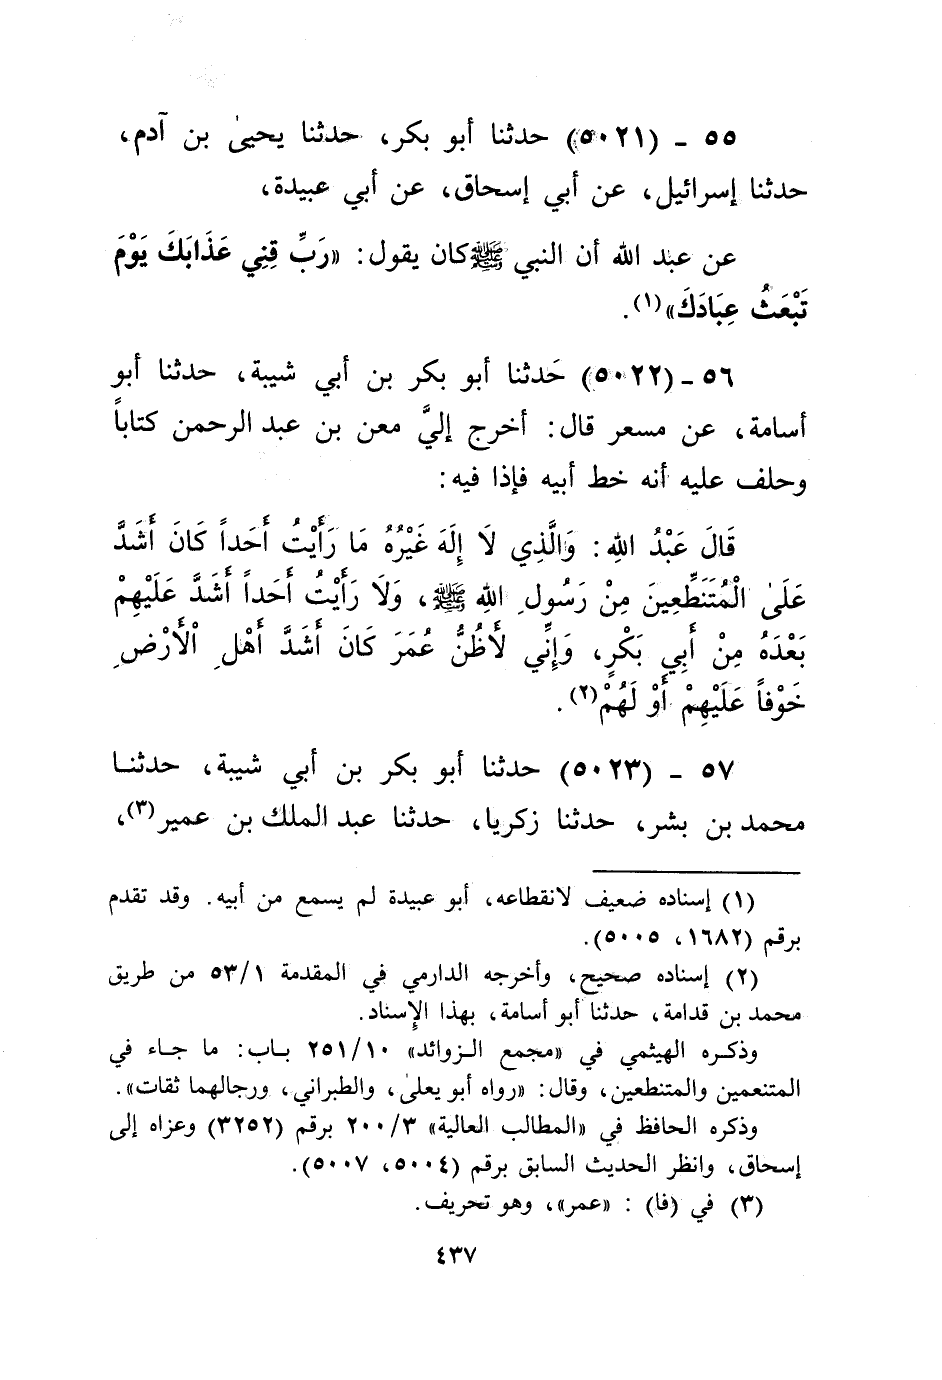 ٥٥ ـ (٥٠٢١) حدثنا أبو بكر، حدثنا يحيىٰ بن آدم،
حدثنا إسرائيل، عن أبي إسحاق، عن أبي عبيدة،
عن عبد الله أن النبي ﷺ كان يقول: «رَبِّ قِنِي عَذَابَكَ يَوْمَ
تَبْعَثُ عِبَادَكَ»(١).
٥٦ ـ (٥٠٢٢) حَدثنا أبو بكر بن أبي شيبة، حدثنا أبو
أسامة، عن مسعر قال: أخرج إليَّ معن بن عبد الرحمن كتاباً
وحلف عليه أنه خط أبيه فإذا فيه:
قَالَ عَبْدُ اللهِ: وَالَّذِي لَا إِلَهَ غَيْرُهُ مَا رَأَيْتُ أَحَداً كَانَ أَشَدَّ
عَلَىٰ الْمُتَنَطِّعِينَ مِنْ رَسُولِ اللهِ ﷺ، وَلَا رَأَيْتُ أَحَداً أَشَدَّ عَلَيْهِمْ
بَعْدَهُ مِنْ أَبِي بَكْرٍ، وَإِنِّي لَأَظُنُّ عُمَرَ كَانَ أَشَدَّ أَهْلِ الْأَرْضِ
خَوْفاً عَلَيْهِمْ أَوْ لَهُمْ(٢).
٥٧ ـ (٥٠٢٣) حدثنا أبو بكر بن أبي شيبة، حدثنا
محمد بن بشر، حدثنا زكريا، حدثنا عبد الملك بن عمير(٣)،
(١) إسناده ضعيف لانقطاعه، أبو عبيدة لم يسمع من أبيه. وقد تقدم
برقم (١٦٨٢، ٥٠٠٥).
(٢) إسناده صحيح، وأخرجه الدارمي في المقدمة ٥٣/١ من طريق
محمد بن قدامة، حدثنا أبو أسامة، بهذا الإسناد.
وذكره الهيثمي في «مجمع الزوائد» ٢٥١/١٠ باب: ما جاء في
المتنعمين والمتنطعين، وقال: «رواه أبو يعلىٰ، والطبراني، ورجالهما ثقات».
وذكره الحافظ في «المطالب العالية» ٢٠٠/٣ برقم (٣٢٥٢) وعزاه إلى
إسحاق، وانظر الحديث السابق برقم (٥٠٠٤، ٥٠٠٧).
(٣) في (فا) : «عمر»، وهو تحريف.
٤٣٧